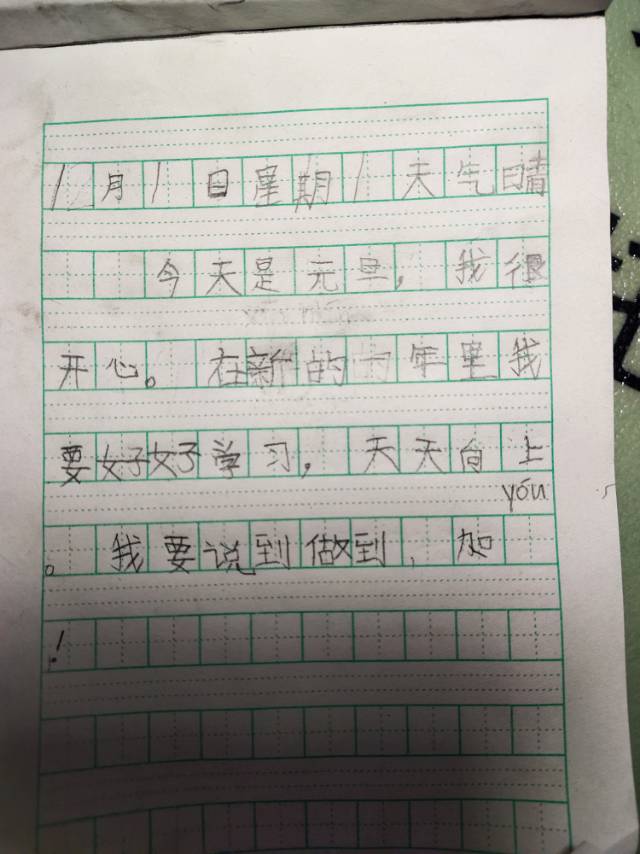 1月1日星期1天气晴
今天是元旦，我很
开心。在新的一年里我
要好好学习，天天向上
yóu
。我要说到做到，加
！